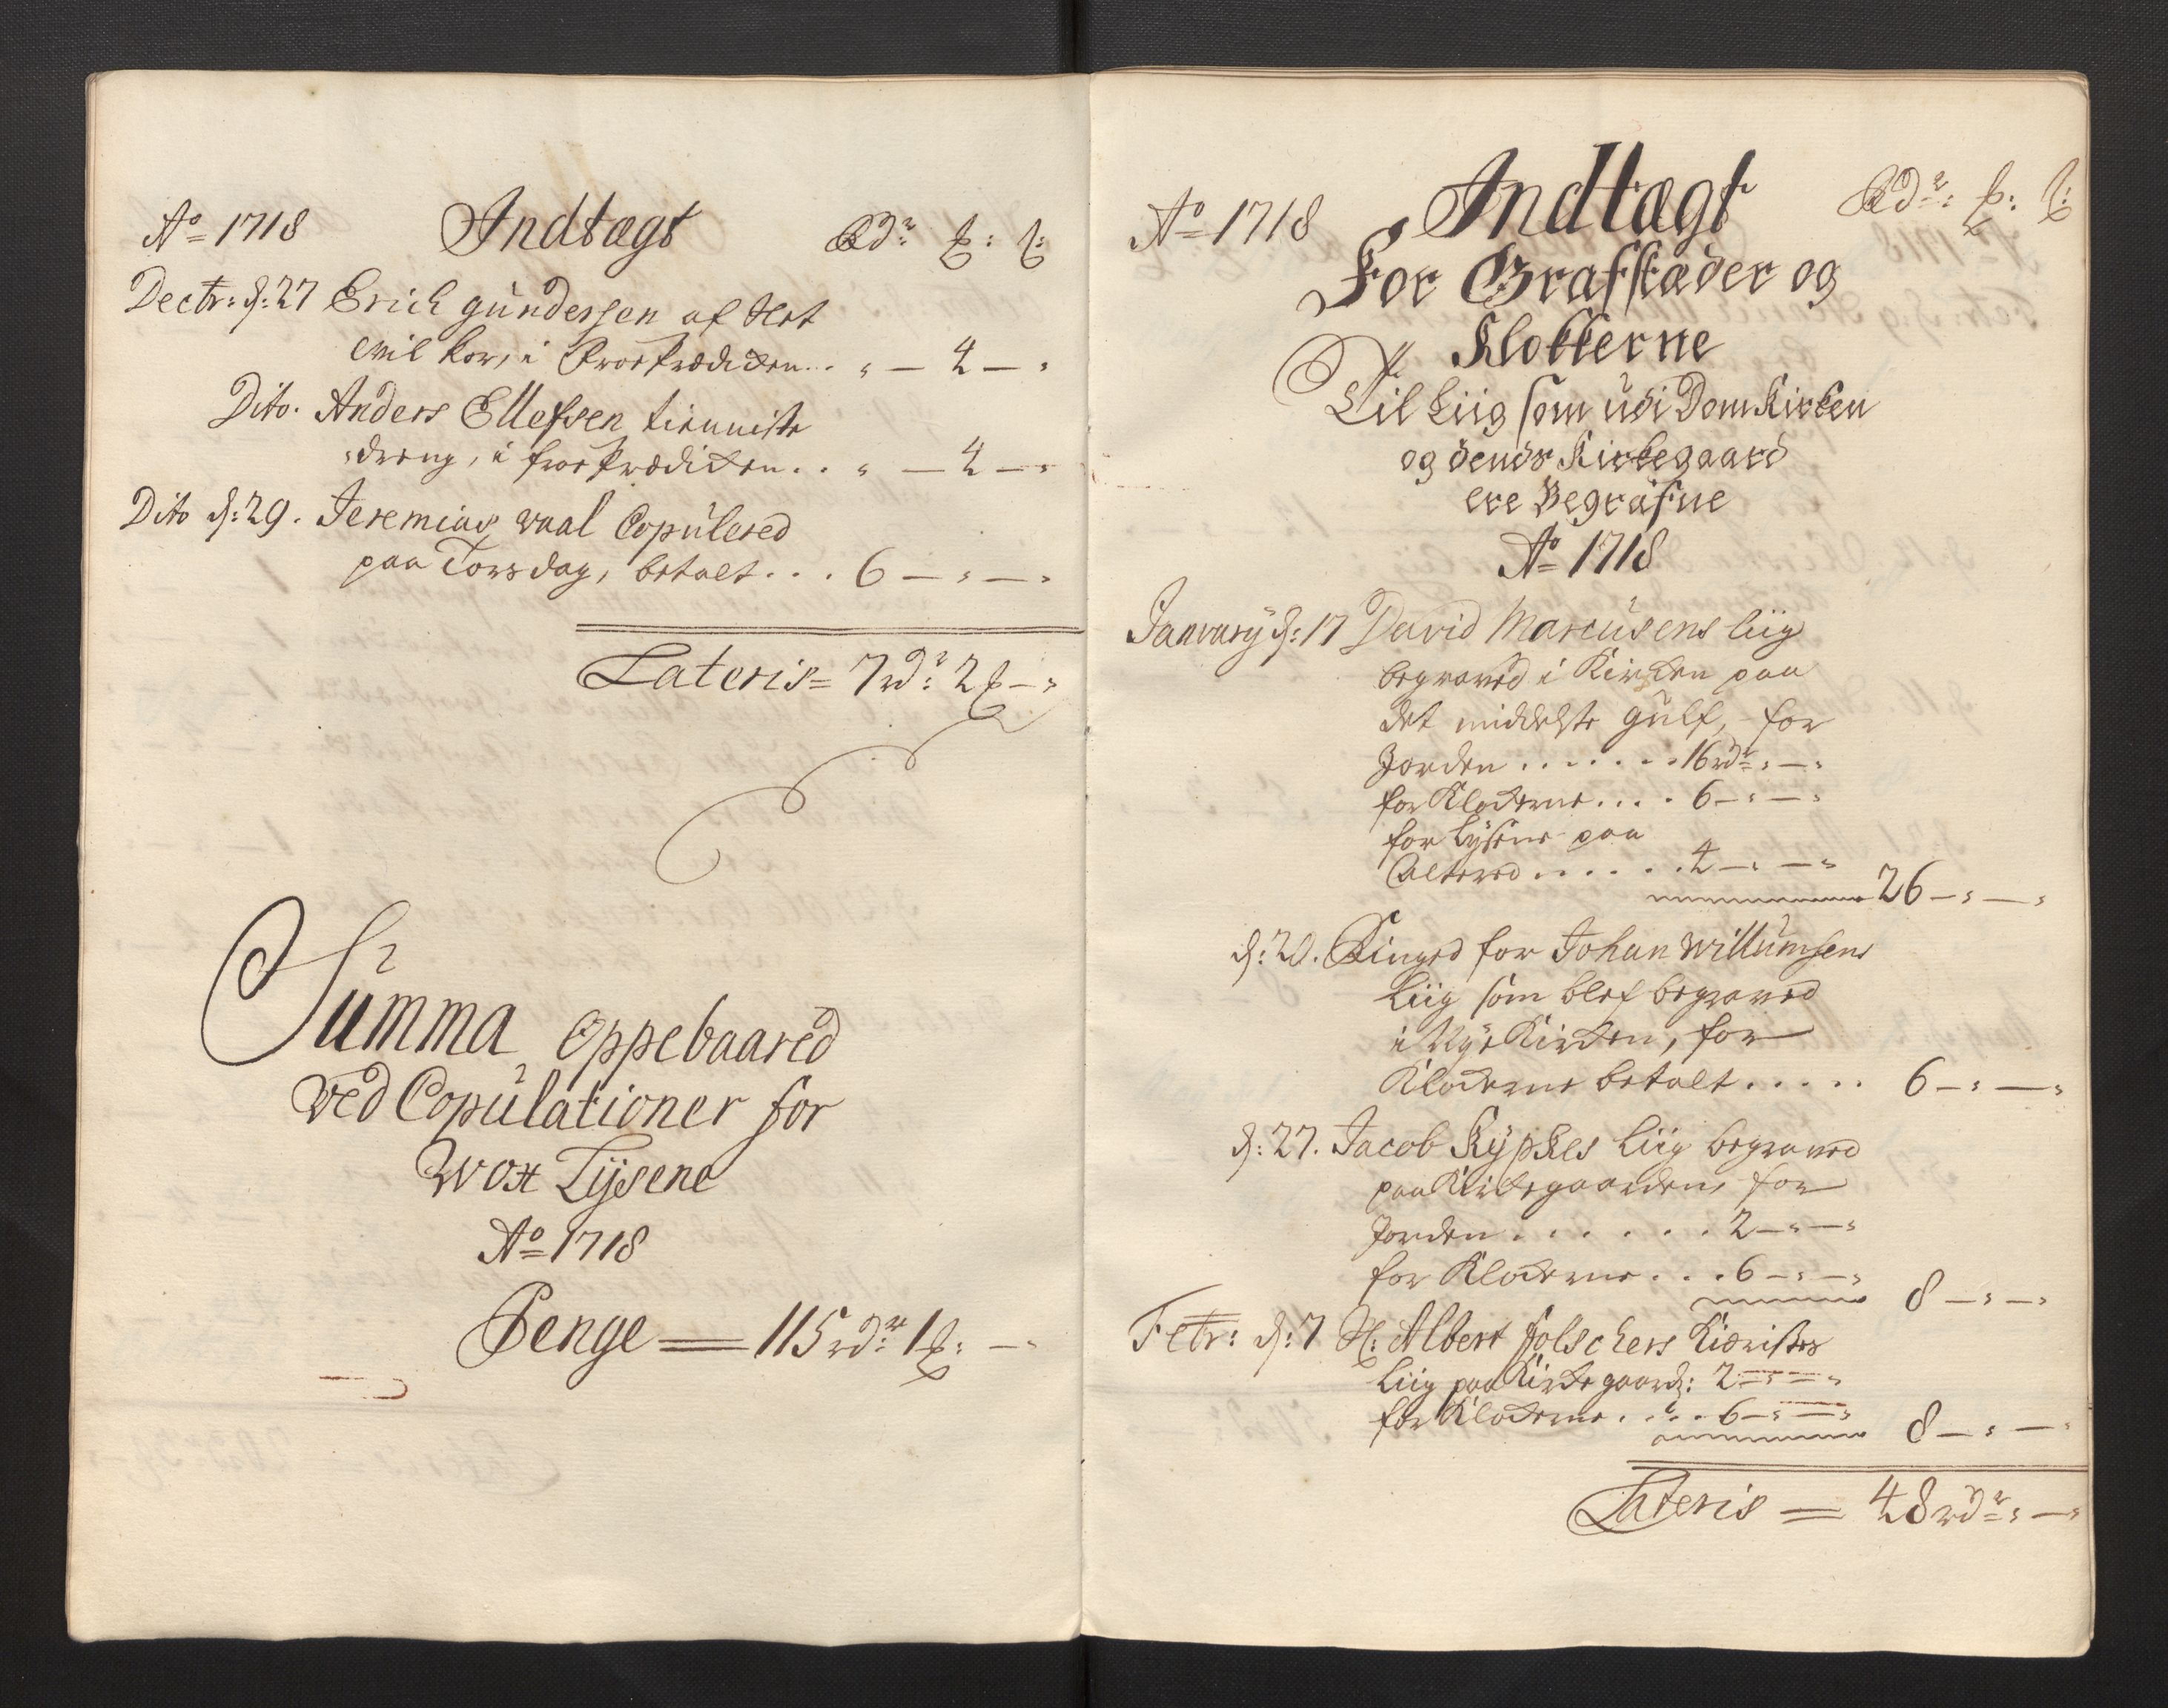 Ao 1718 Indtægt Rdr: ß: ß:
Dectr: d: 27 Erich gündersen af det
Civil kor, i Froe Prædicken.. " — 4 — "
Dito. Anders Ellefsen tienniste
dreng, i froe Prædicken.. " — 4 — "
Dito d: 29. Jeremias vaal Copülered
paa Torsdag, betalt... 6 — " — "
Lateris = 7 rdr: 2 ß — "
Summa Oppebaared
ved Copülationer for
Wox Lÿsene
Ao 1718
Penge = 115 rdr: 1 ß: —
Ao 1718 Indtægt Rdr: ß: ß:
For Grafstæder og
Klokkerne
Til Liig som üdi Dom Kirken
og dends Kirkegaard
ere Begrafne
Ao 1718
Janvarÿ d: 17 David Marcüsens liig
begraved i Kircken paa
det middelste gülf, for
Jorden....... 16 rdr: " — "
for Klockerne.... 6 — " — "
for Lÿsene paa
Altered...... 4 — " — "
26 — " — "
d: 20. Ringed for Johan Willümsens
Liig som blef begraved
i Nye Kircken, for
Klockerne betalt..... 6 — " — "
d: 27. Jacob Kÿpkes Liig begraved
paa Kirkegaarden, for
Jorden...... 2 — " — "
for Klockerne... 6 — " — "
8 — " — "
Febr: d: 7 H: Albert folschers Kiæristes
Liig paa Kirkegaard: 2 — " — "
for Klockerne.... 6 — " — "
8 — " — "
Lateris = 48 rdr: " — "